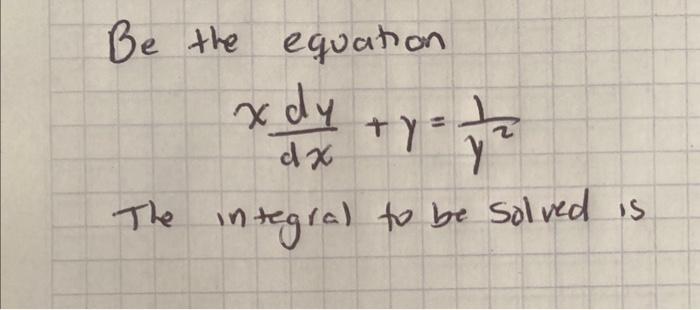 Be the equation
x dy/dx + y = 1/y²
The integral to be solved is